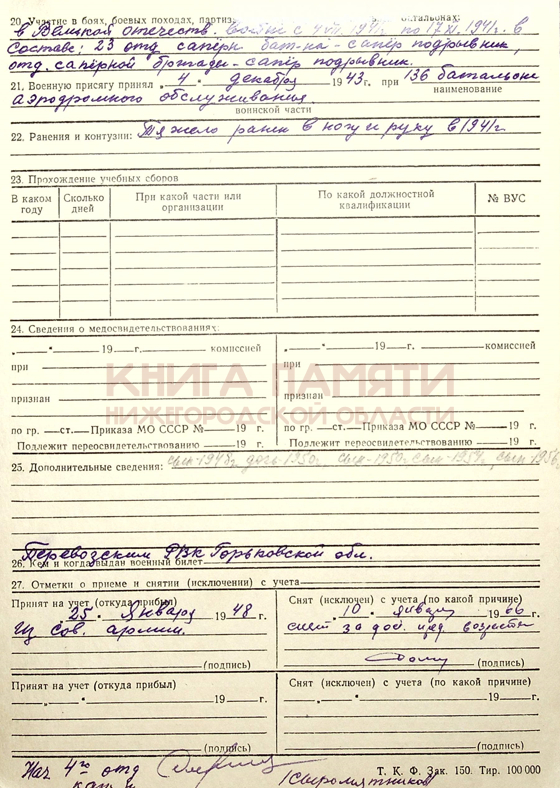 20. Участие в боях, боевых походах, партиз
в Великой отечеств. войне с 4 VII 1941г. по 17 XI. 1941г. в
составе: 23 отд. саперн. бат-на - сапер подрывник,
отд. сапёрной бригады - сапёр подрывник.
21. Военную присягу принял „4" декабря 1943 г. при 136 батальоне
наименование
аэродромного обслуживания
воинской части
22. Ранения и контузии: Тяжело ранен в ногу и руку в 1941г.
23. Прохождение учебных сборов
В каком году Сколько дней При какой части или организации По какой должностной квалификации № ВУС
24. Сведения о медосвидетельствованиях:
„—"—19—г.—комиссией „—"—19—г.—комиссией
при при
признан признан
по гр.—ст.—Приказа МО СССР №—19 г. по гр.—ст.—Приказа МО СССР №—19 г.
Подлежит переосвидетельствованию—19 г. Подлежит переосвидетельствованию—19 г.
КНИГА ПАМЯТИ
НИЖЕГОРОДСКОЙ ОБЛАСТИ
25. Дополнительные сведения: сын-1948г. дочь 1950г. сын-1954г., сын 1956
Перевозским РВК Горьковской обл.
26. Кем и когда выдан военный билет
27. Отметки о приеме и снятии (исключении) с учета
Принят на учет (откуда прибыл) Снят (исключен) с учета (по какой причине)
„25" Января 1948 г. „10" января 1966 г.
Из Сов. армии. снят за возраста
(подпись) (подпись)
Принят на учет (откуда прибыл) Снят (исключен) с учета (по какой причине)
„—"—19—г. „—"—19—г.
(подпись) (подпись)
Нач 4го отд
Т. К. Ф. Зак. 150. Тир. 100 000
/Сыромятников